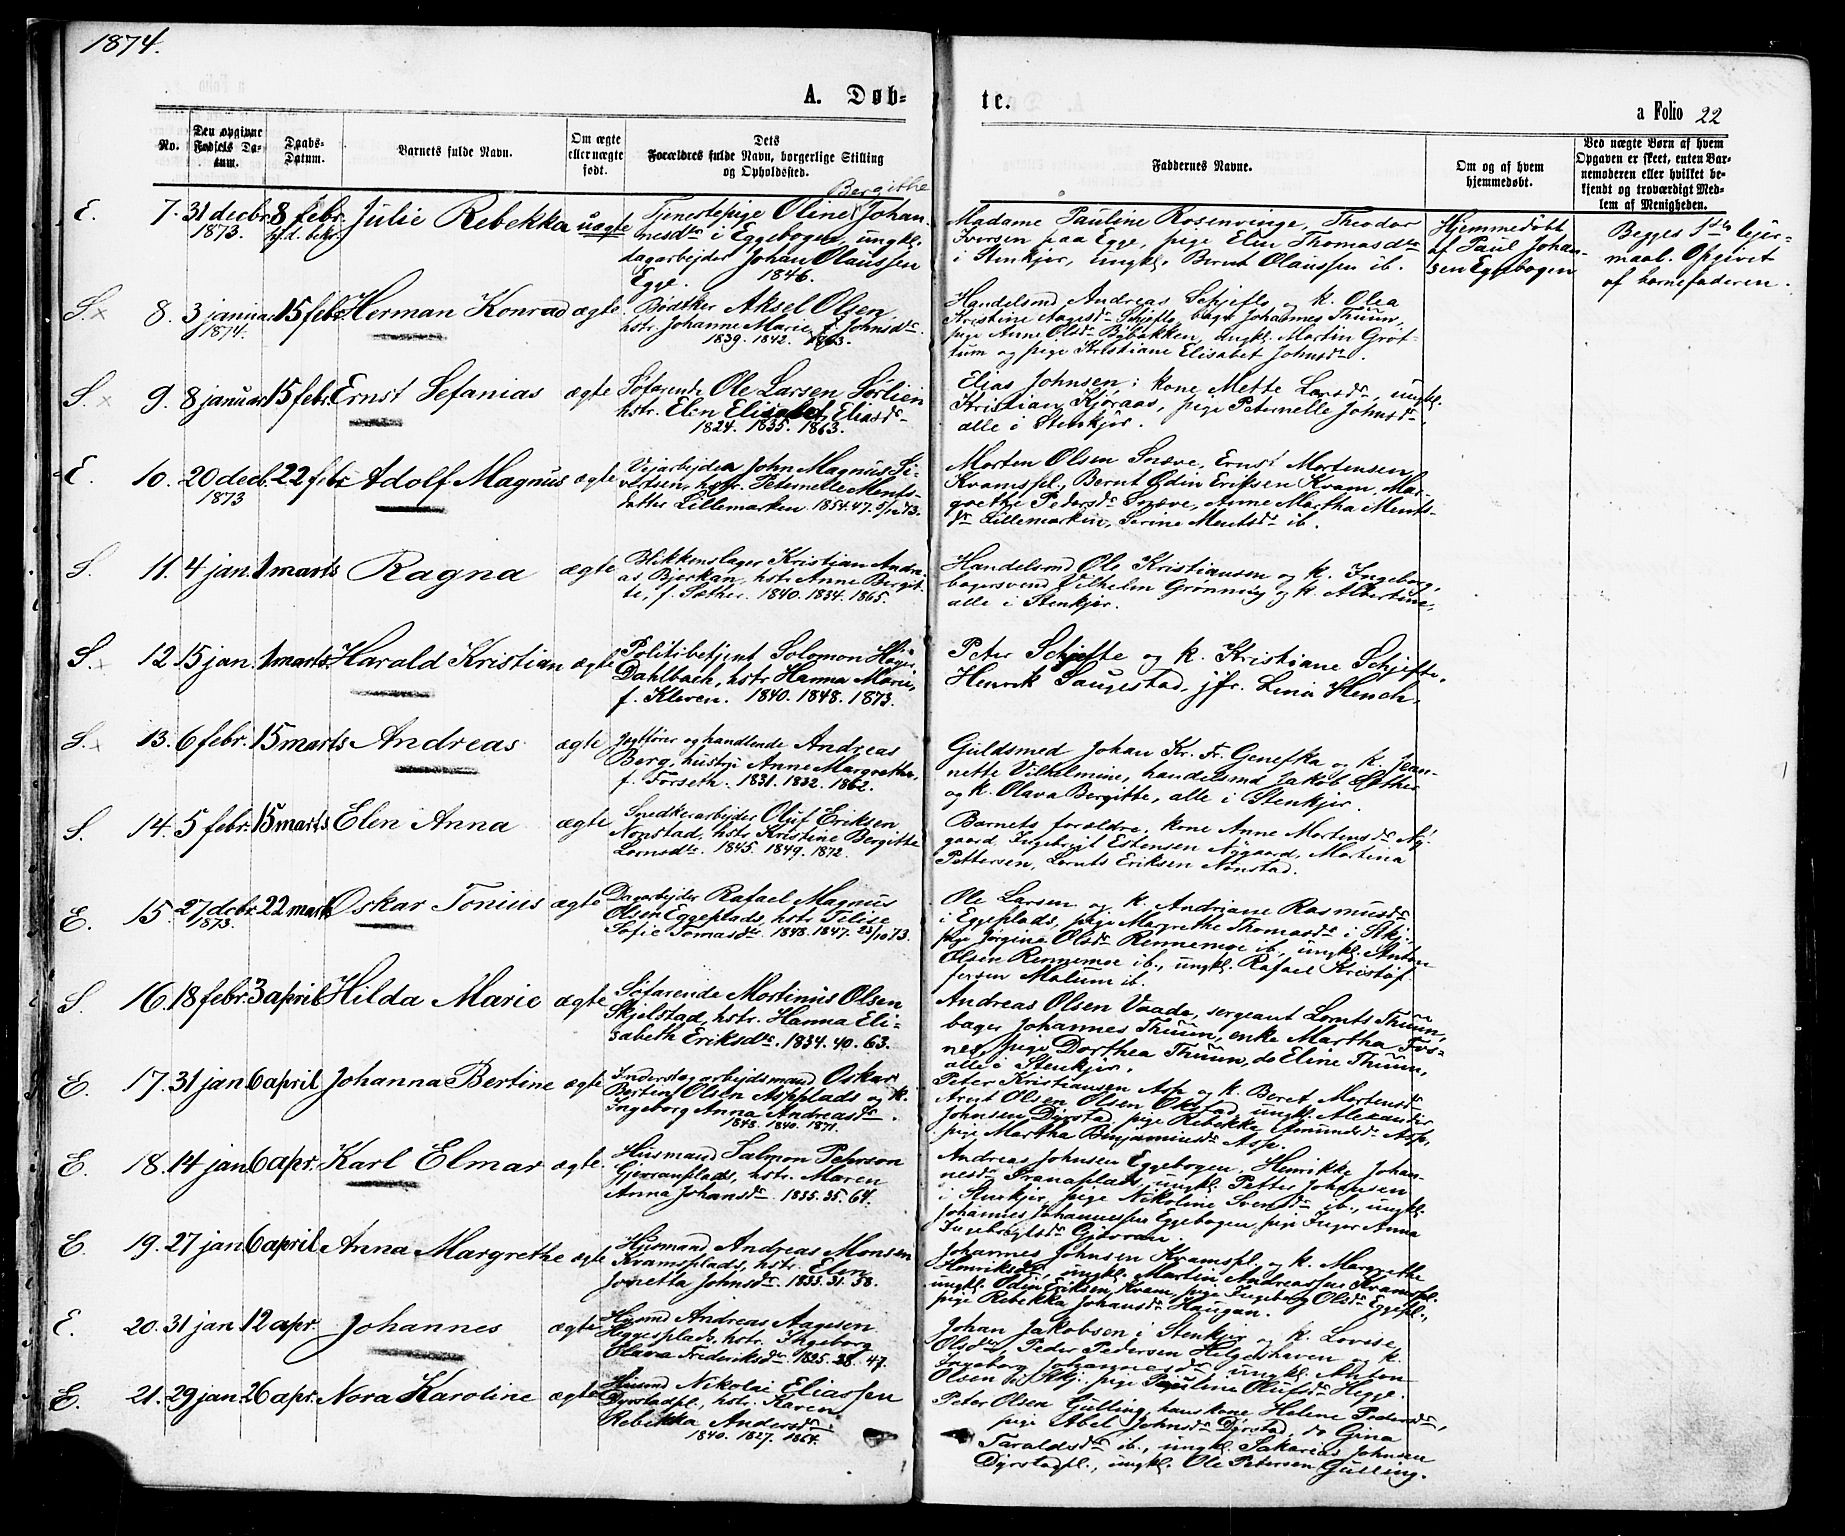 1874.
A. Døb-
te.
a Folio 22
No.
Den opgivne Fødsels Da-
tum.
Daabs-
Datum.
Barnets fulde Navn.
Om ægte
eller uægte
født.
Dets
Forældres fulde Navn, borgerlige Stilling
og Opholdssted.
Faddernes Navne.
Om og af hvem
hjemmedøbt.
Ved uægte Børn af hvem
Opgaven er skeet, enten Bar-
nemoderen eller hvilket be-
kjendt og troværdigt Med-
lem af Menigheden.
E. 7. 31 decbr. 8 febr. Julie Rebekka uægte
1873.
Bergithe
Tjenestepige Oline Johan-
nesdtr i Eggebogen, ungkl.
dagarbejder Johan Olaussen
Egge. 1846.
Madame Pauline Rosenvinge, Theodor
Iversen paa Egge, pige Elen Thomasdtr
i Stenkjer, ungkl. Bernt Olaussen ib.
Hjemmedøbt
af Paul Johan-
sen Eggebogen
Begges 1ste lejer-
maal. Opgivet
af barnefaderen.
S. 8. 3 januar 15 febr. Herman Konrad ægte
1874.
Bødker Aksel Olsen,
hstr. Johanne Marie f. Johnsdtr.
1839. 1842. 1863.
Handelsmd Andreas Schjefte og k. Olea
Kristine Aagesdtr Schjefte, bager Johannes Thuun,
pige Anne Olsdtr Bybakken, ungkl. Martin Grøt-
tum og pige Kristiane Elisabet Johnsdtr.
S. 9. 8 januar 15 febr. Ernst Sefanias ægte
Søfarende Ole Larsen Sørlien
hstr. Elen Elisabet Eliasdtr
1824. 1835. 1863.
Elias Johnsen, kone Mette Larsdtr, ungkl.
Kristian Kjøraas, pige Peternelle Johnsdtr
alle i Stenkjer.
E. 10. 20 decb. 22 febr Adolf Magnus ægte
1873
Vejarbejder John Magnus Si-
vertsen, hstr. Peternelle Ments-
datter Lillemarken. 1854. 47. 5/12 73.
Morten Olsen Snæve, Ernst Mortensen
Kvamspl., Bernt Odin Eriksen Kvam, Mar-
grethe Pedersdtr Snæve, Anne Martha Ments-
dtr Lillemarken, Serine Mentsdtr ib.
S. 11. 4 jan. 1 marts Ragna ægte
Blikkenslager Kristian Andre-
as Bjerkan, hstr. Anne Bergit-
te, f. Sæther. 1840. 1834. 1865.
Handelsmd Ole Kristiansen og k. Ingeborg,
bagersvend Vilhelm Grønning og k. Albertine,
alle i Stenkjer.
S. 12 15 jan 1 marts. Harald Kristian ægte
Politibetjent Solomon Høyer
Dahlbach, hstr. Hanna Marie,
f. Kleven. 1840. 1848. 1873.
Peter Schjefte og k. Kristiane Schjefte,
Henrik Saugestad, jfr. Lina Hench.
S. 13. 6 febr. 15 marts Andreas ægte
Jegtfører og handlende Andreas
Berg, hustru Anne Margrethe,
f. Forseth. 1831. 1832. 1862.
Guldsmed Johan Kr. Fr. Genefka og k. Jean-
nette Vilhelmine, handelsmd Jakob Sæther
og k. Olava Bergitte, alle i Stenkjer.
S. 14. 5 febr. 15 marts. Elen Anna ægte
Snedkerarbejder Oluf Eriksen
Nonstad, hstr. Kristine Bergitte
Lornsdtr. 1845. 1849. 1872.
Barnets forældre, kone Anne Mortensdtr Ny-
gaard, Ingebrigt Estensen Nygaard, Martina
Pettersen, Lornts Eriksen Nonstad.
E. 15. 27 decbr. 22 marts Oskar Tonius ægte
1873.
Dagarbejder Rafael Magnus
Olsen Eggeplads, hstr. Telise
Sofie Tomasdtr. 1848. 1847. 23/10 73.
Ole Larsen og k. Andriane Rasmusdtr
i Eggeplads, pige Margrethe Thomasdtr i Stkj.,
pige Jørgine Olsdtr Rennemoe ib., ungkl. Anton
Olsen Rennemoe ib., ungkl. Rafael Kristof-
fersen Malum ib.
S. 16. 18 febr. 3 april Hilda Marie ægte
Søfarende Martinus Olsen
Skjelstad, hstr. Hanna Eli-
sabeth Eriksdtr. 1834. 40. 63.
Andreas Olsen Vaade, sergeant Lornts Thuun,
bager Johannes Thuun, enke Martha Fos-
nes, pige Dorthea Thuun, do Eline Thuun,
alle i Stenkjer.
E. 17. 31 jan 6 april Johanna Bertine ægte
Inderst og arbejdsmand Oskar
Bertin Olsen Aspplads og k.
Ingeborg Anna Andreasdtr.
1848. 1840. 1871.
Peter Kristiansen Asp og k. Beret Mortensdtr
Arnt Olsen Olsen Økstad, ungkl. Alexander
Johnsen Dyrstad, pige Rebekke Amundsdtr Asp,
pige Martha Benjaminsdtr Asp.
E. 18. 14 jan 6 apr. Karl Elmar ægte.
Husmand Salmon Peterson
Gjævranplads, hstr. Maren
Anna Johansdtr. 1835. 35. 64.
Andreas Johnsen Eggebogen, Henrikke Johan-
nesdtr Tranaplads, ungkl. Petter Johansen
i Stenkjer, pige Nikoline Svensdtr ib., ungkl.
Johannes Johannessen Eggebogen, pige Inger Anna
Ingebrigtsdtr Gjævran.
E. 19. 27 jan 6 april Anna Margrethe ægte
Husmand Andreas Monsen
Kvamsplads, hstr. Elen
Jonetta Johnsdtr. 1833. 31. 58.
Johannes Johnsen Kvamspl. og k. Margrethe
Henriksdtr, ungkl. Martin Andreassen Kvamspl.
ungkl. Odin Eriksen Kvam, pige Ingeborg Olsdtr Eggepl.,
pige Rebekka Johansdtr Haugan.
E. 20. 31 jan 12 apr. Johannes ægte
Husmd Andreas Aagesen
Heggesplads, hstr. Ingeborg
Olava Frederiksdtr. 1825. 28. 47.
Johan Jakobsen i Stenkjer og k. Lovise
Olsdtr, Peder Pedersen Helgeshaven og k.
Ingeborg Johannesdtr, ungkl. Anton
Olsen i Stkj. pige Pauline Olufsdtr Hegge.
E. 21. 29 jan 26 apr. Nora Karoline ægte
Husmd Nikolai Eliassen
Dyrstadpl., hstr. Karen
Rebekka Andersdtr
1840. 1827. 1864.
Peter Olsen Gulling, hans kone Helene Pedersdtr,
pige Abel Johnsdtr Dyrstad, do Gina
Taraldsdtr ib., ungkl. Sakarias Johnsen
Dyrstadpl., ungkl. Ole Petersen Gulling.